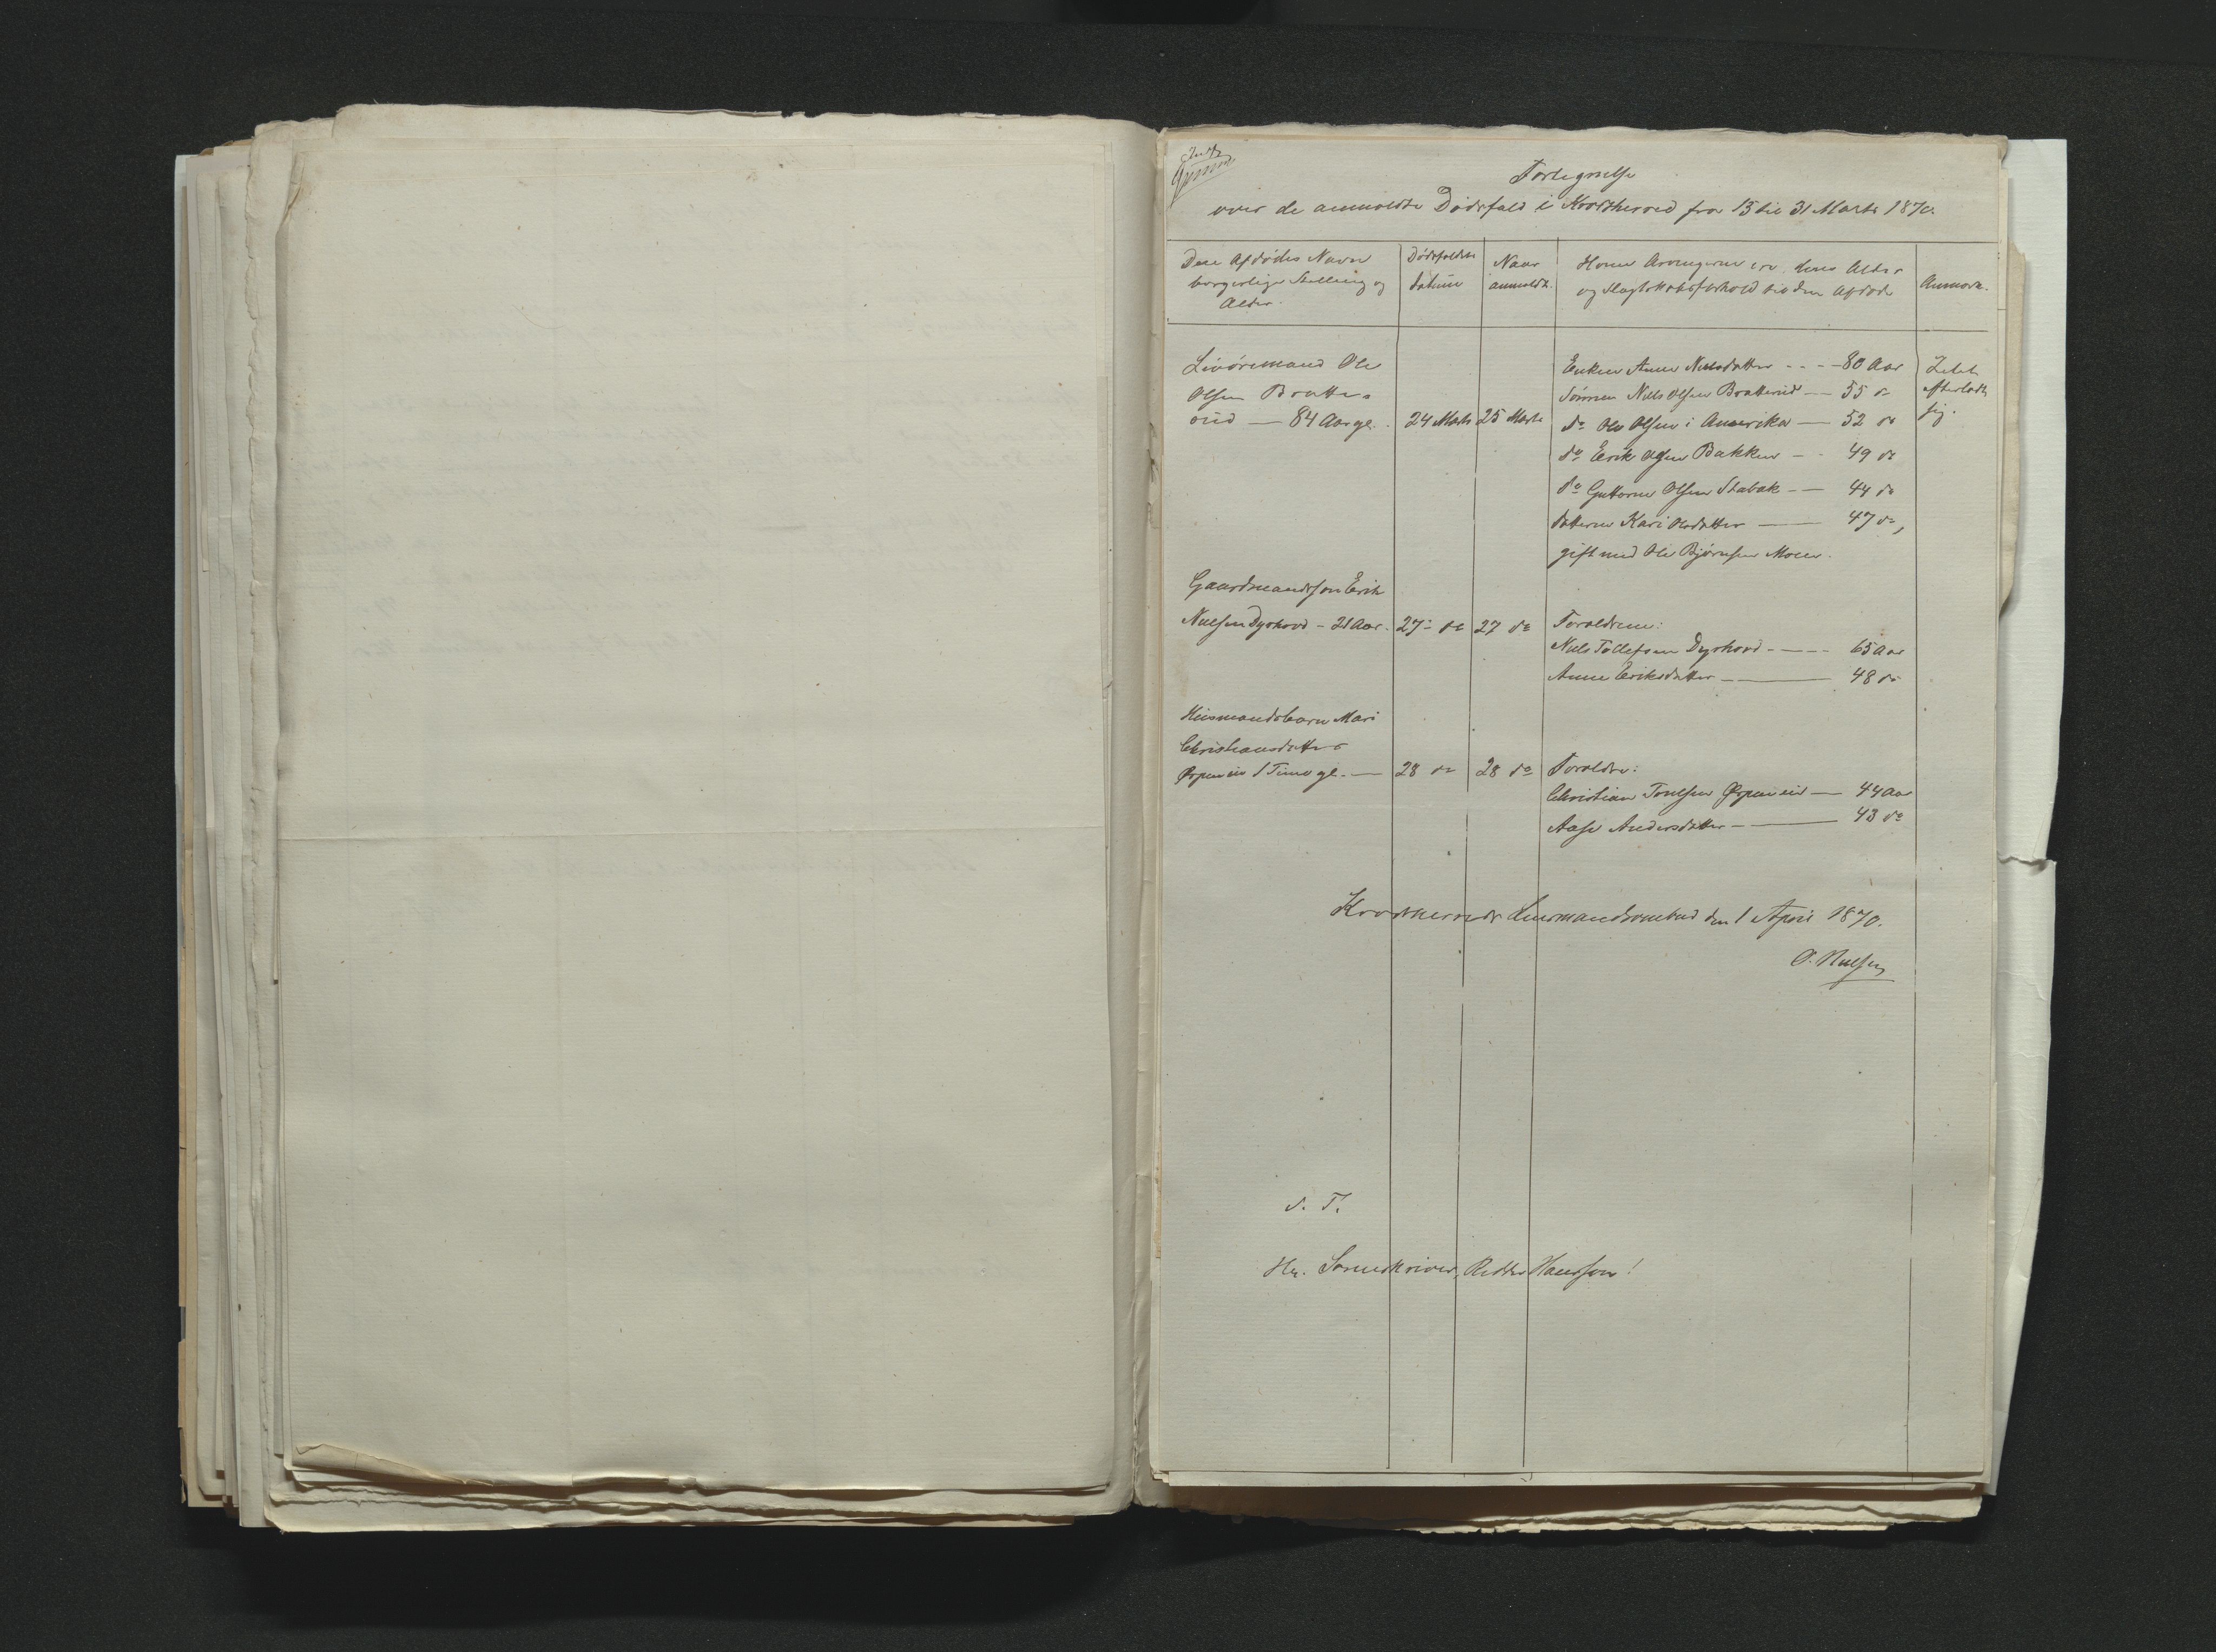 Fortegnelse
over de anmeldte Dødsfald i Krødsherred fra 15 til 31 Marts 1870.
Den Afdødes Navn
borgerlige Stilling og
Alder.
Dødsfaldets
datum
Naar
anmeldt.
Hvem Arvingerne ere, deres Alder
og Slægtskabsforhold til den Afdøde
Anmærk.
Livøremand Ole
Olsen Bratte-
rud — 84 Aar gl.
24 Marts
25 Marts
Enken Anne Nielsdatter - - - 80 Aar
Sønnen Niels Olsen Bratterud — 55 do
do Ole Olsen i Amerika — 52 do
do Erik Olsen Bakken - - 49 do
do Guttorm Olsen Stabak - — 44 do
datteren Kari Olsdatter — 47 do,
gift med Ole Bjørnsen Moen.
Lidet
efterladt
sig.
Gaardmandssøn Erik
Nielsen Dyshovd - 21 Aar.
27 do
27 do
Forældrene:
Niels Tollefsen Dyshovd - — - 65 Aar
Anne Eriksdatter - — 48 do
Huusmandsbarn Mari
Christiansdatter
1 Time gl. —
28 do
28 do
Forældre:
Christian — 44 Aar
Aase Andersdatter - — 43 do
Krødsherreds Lensmandsombud den 1 April 1870.
O. Nielsen
S. T.
Hr. Sorenskriver, Ridder Hansson!